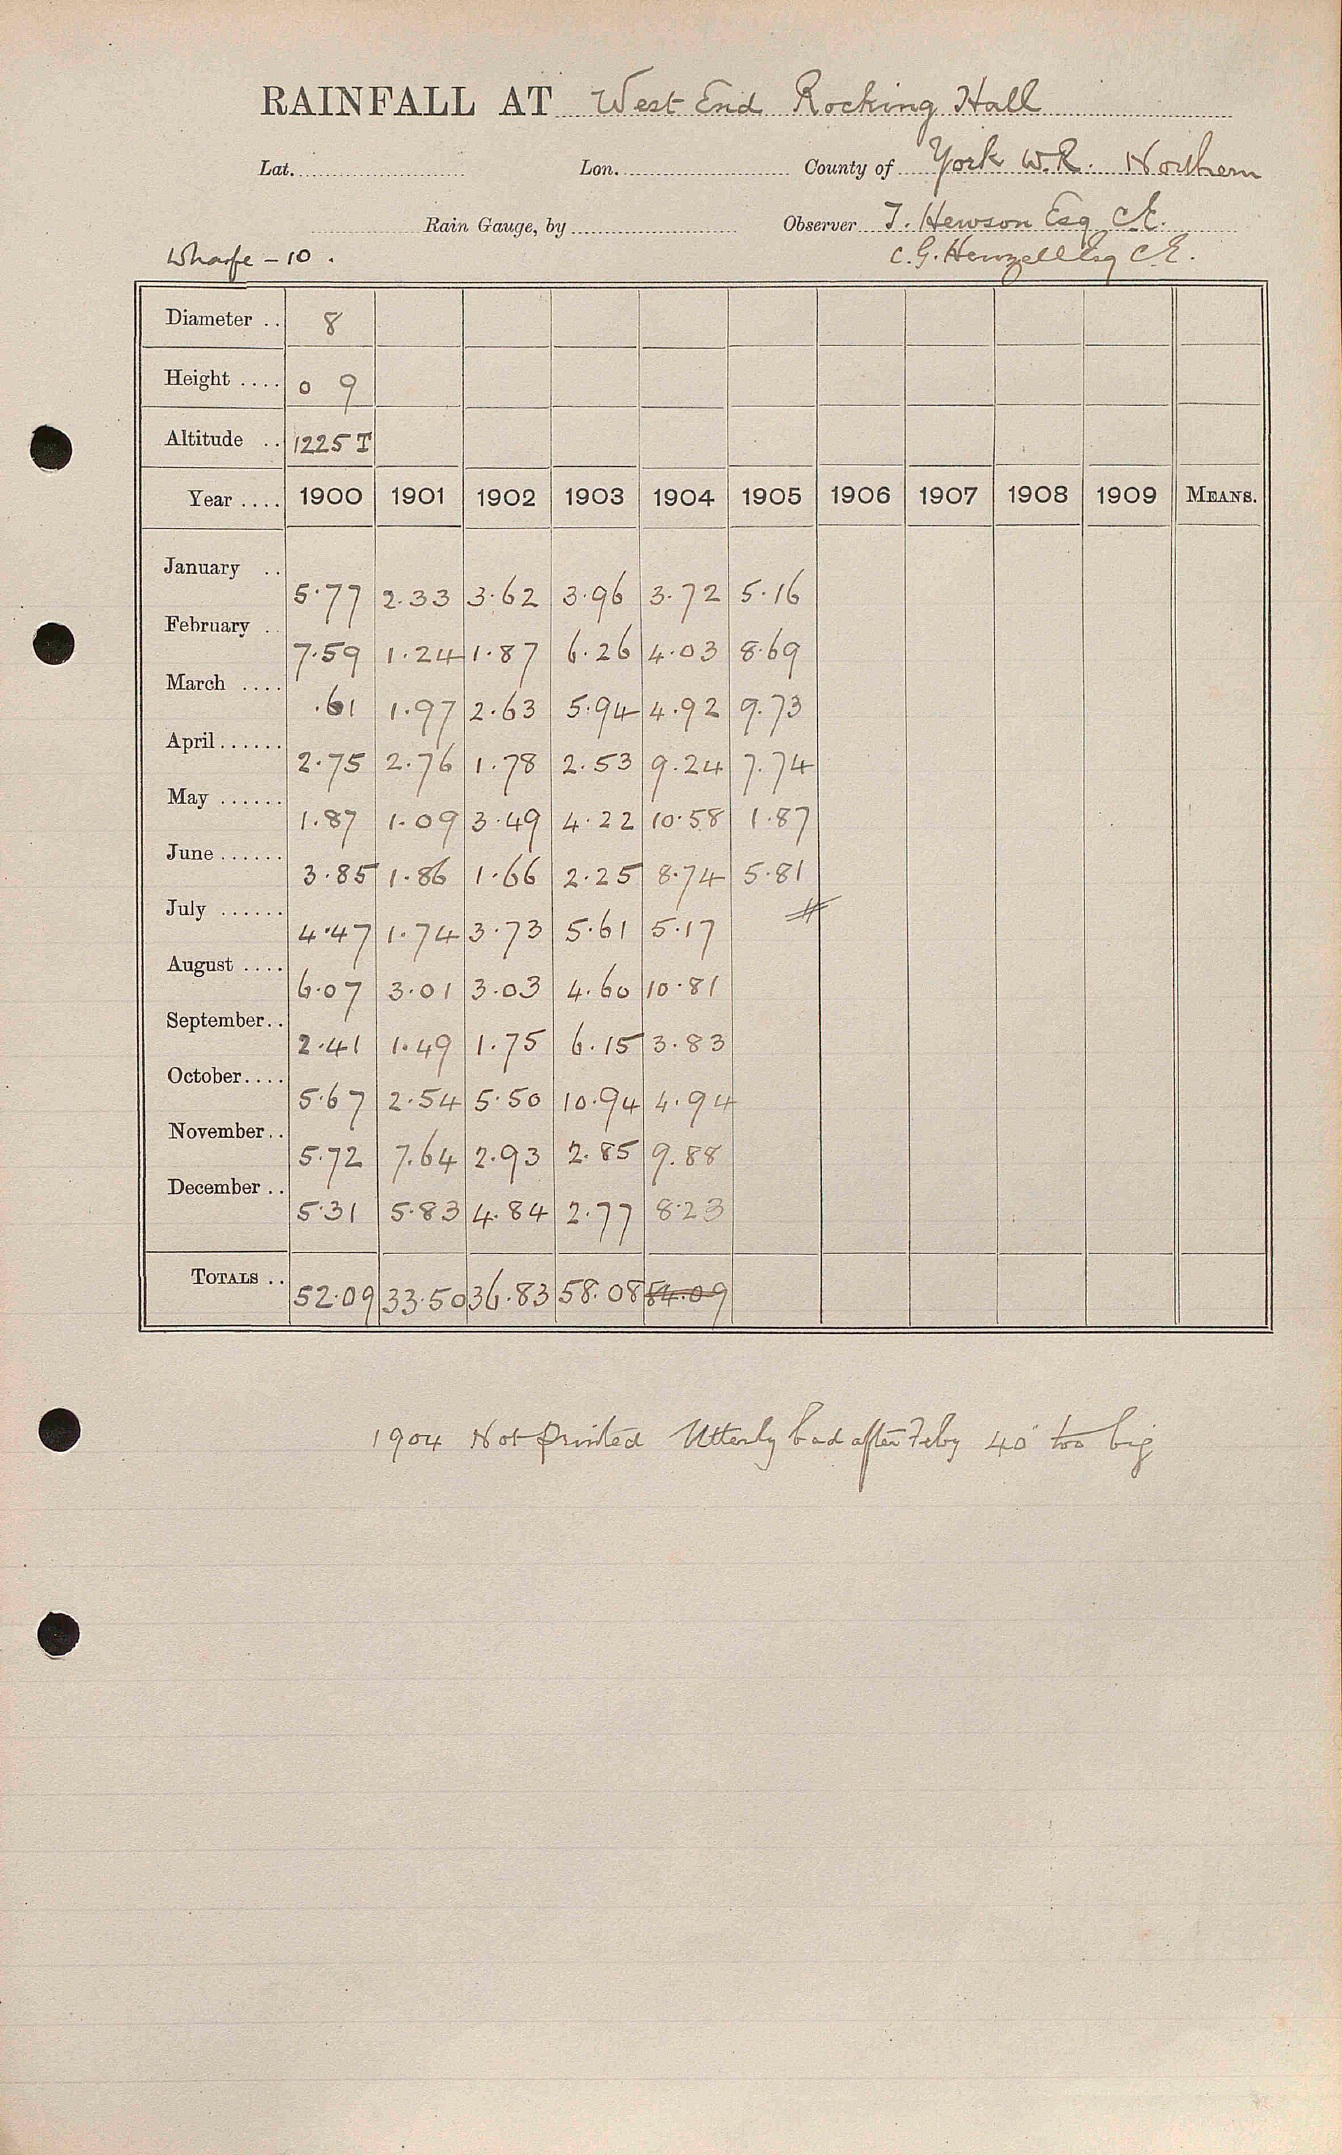 RAINFALL AT West End Rocking Hall
Lat. Lon. County of York W.R. Northern
Rain Gauge, by Observer T. Hewson Esq C.E.
Wharfe - 10. C. G. Henzell Esq C.E.
Diameter .. 8
Height .... 0 9
Altitude .. 1225 T
Year .... 1900 1901 1902 1903 1904 1905 1906 1907 1908 1909 MEANS.
January .. 5.77 2.33 3.62 3.96 3.72 5.16
February .. 7.59 1.24 1.87 6.26 4.03 8.69
March .... .61 1.97 2.63 5.94 4.92 9.73
April...... 2.75 2.76 1.78 2.53 9.24 7.74
May ...... 1.87 1.09 3.49 4.22 10.58 1.87
June...... 3.85 1.86 1.66 2.25 8.74 5.81
July ...... 4.47 1.74 3.73 5.61 5.17
August .... 6.07 3.01 3.03 4.60 10.81
September.. 2.41 1.49 1.75 6.15 3.83
October.... 5.67 2.54 5.50 10.94 4.94
November.. 5.72 7.64 2.93 2.85 9.88
December.. 5.31 5.83 4.84 2.77 8.23
TOTALS .. 52.09 33.50 36.83 58.08 84.09
1904 Not printed Utterly bad after Feby 40" too big